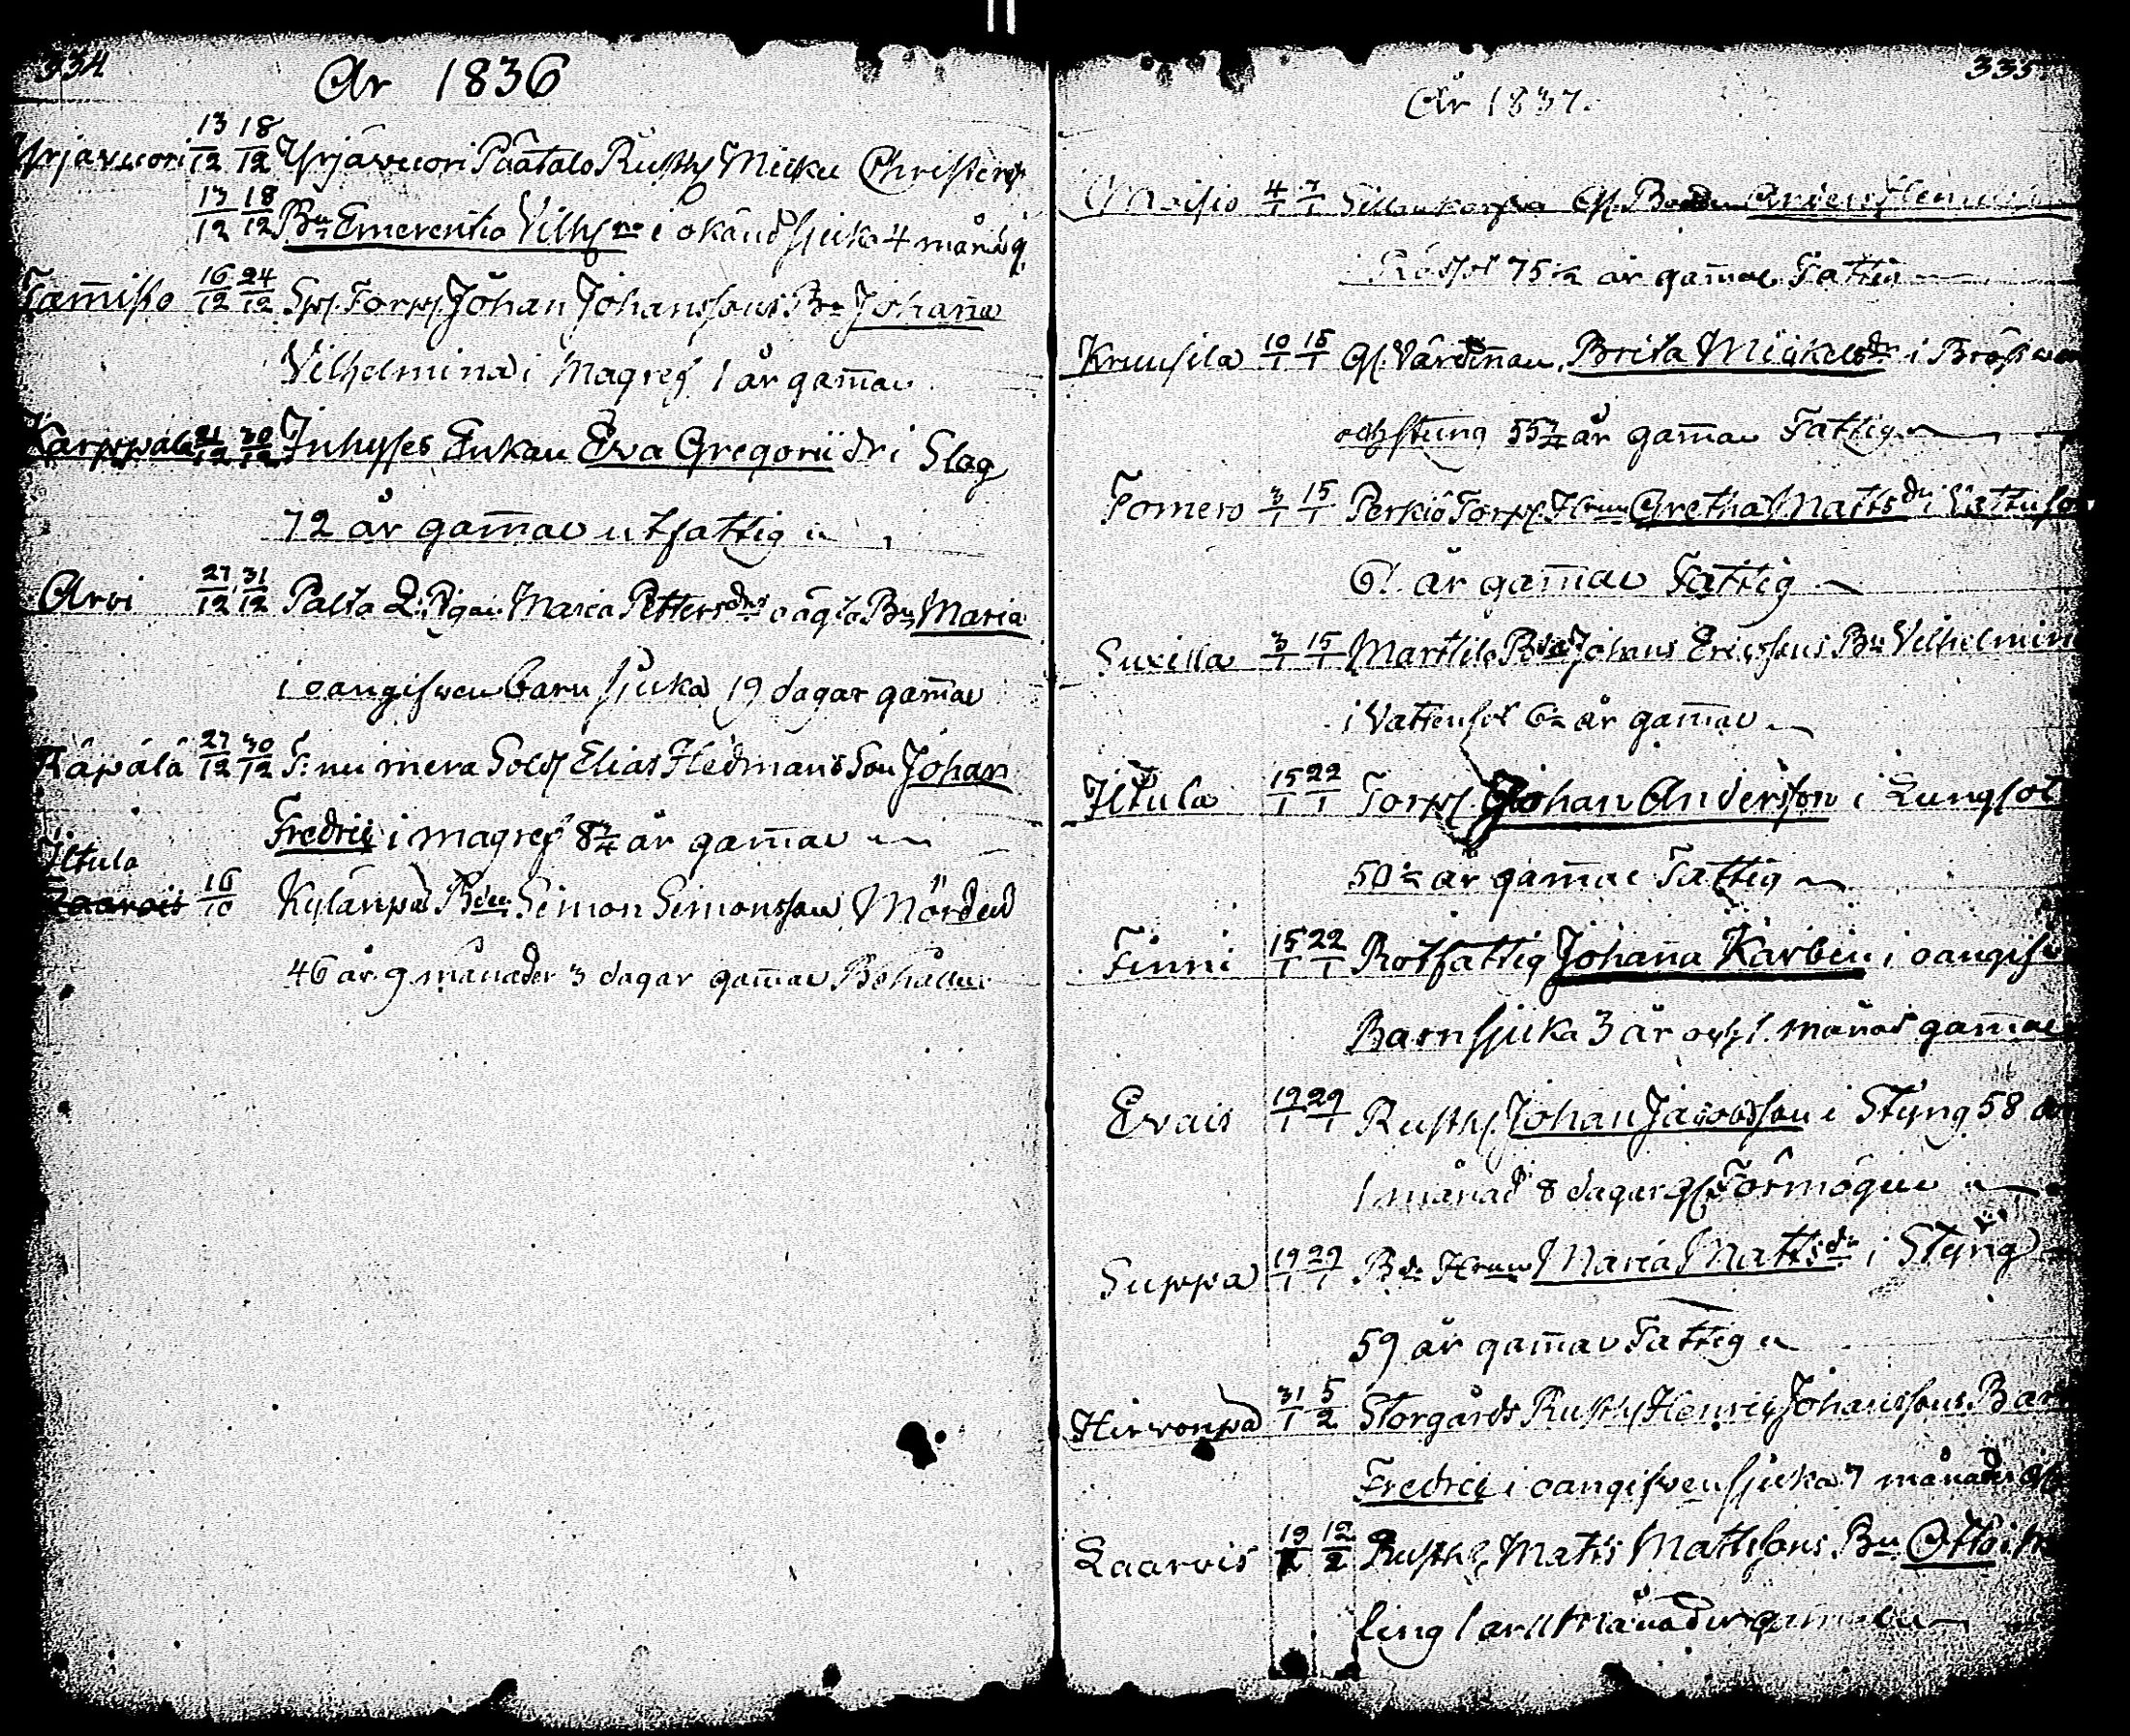 334
År 1836
Yrjävuori 13/12 18/12 Yrjävuori Päätalo Rusth Micku Christers
13/12 18/12 Bn Emerentia Vilhna i okänd sjuka 4 månad g
Tam̄isto 16/12 24/12 Sp. Torp. Johan Johanssons Bn Johan̄a
Vilhelmina i Magref 1 år gam̄al
Karppala 21/12 30/12 Inhyses Enkan Eva Gregorii dr i Slag
72 år gam̄al utfattig
Arvi 27/12 31/12 Palta Pigan Maria Pettersdrs oägta Bn Maria
i oangifwen barnsjuka 19 dagar gam̄al
Räpälä 27/12 30/12 F: nu mera Sold Elias Hedmans Son Johan
Fredric i magref 8 3/4 år gam̄al
Iltula
Laarois 16/10 Kylänpä Bden Simon Simonsson Mördad
46 år 9 månader 3 dagar gam̄al Behållen
335
År 1837.
Moisio 4/1 7/1 Gl. Bonden Anders
75 1/2 år gam̄al Fattig
Kruusila 10/1 15/1 Gl. Värdin̄an Brita Mickelsdr i Bröst
och styng 55 3/4 år gam̄al Fattig
Somero 3/1 15/1 Perkiö Torp. Hrun Gretha Mattsdr i
61 år gam̄al Fattig
Suxilla 3/1 15/1 Marttila Bde Johans Ericssons Bn Vilhelmin
i Vattusot 6 1/2 år gam̄al
Iltula 15/1 22/1 Torp. Johan Andersson i Lungsot
50 1/2 år gam̄al Fattig
Finni 15/1 22/1 Rotfattig Johan̄a Karbin i oangifw
Barnsjuka 3 år och 1 månad gam̄al
Ervais 19/1 29/1 Rusth. Johan Jacobsson i Styng 58 år
1 månad 8 dagar gl Förmögen
Suppa 19/1 29/1 Bde Hrun Maria Mattsdr i Styng
59 år gam̄al Fattig
Hirvonpä 31/1 5/2 Storgårds Rusth Henric Johanssons Barn
Fredric i oangifven sjuka 7 månader gl
Laarois 19/2 12/2 Rusth. Matts Mattssons Bn Otto i
ling 1 år 11 Månader gam̄al